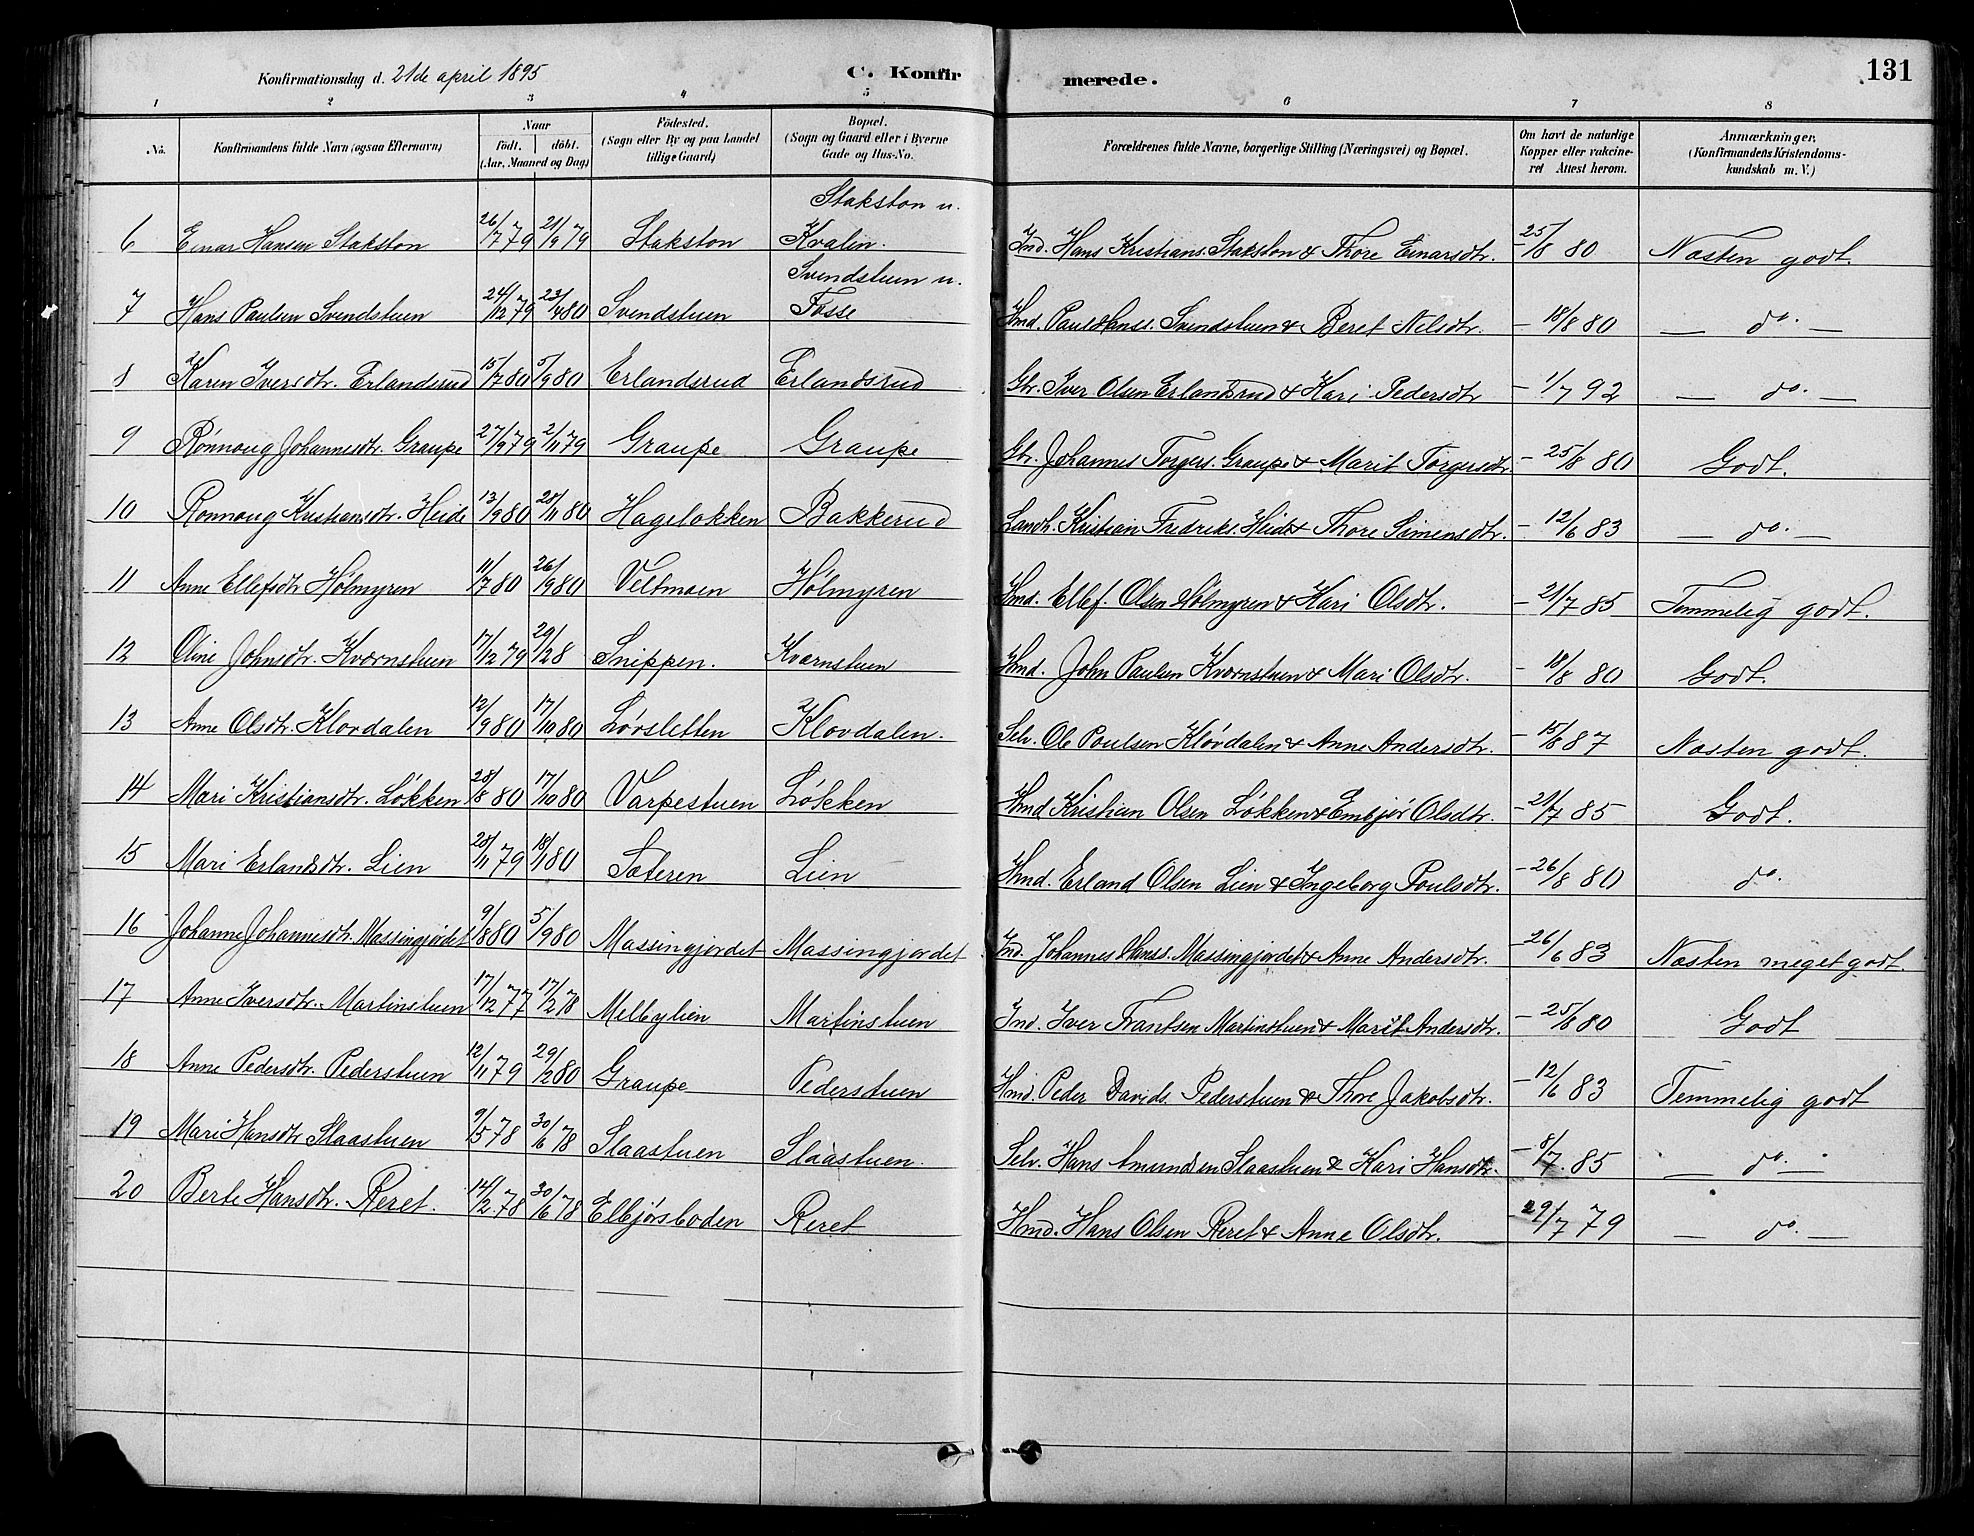 Konfirmationsdag d. 21de april 1895
C. Konfir merede. 131
1 2 3 4 5 6 7 8
No. Konfirmandens fulde Navn (ogsaa Efternavn) Naar født. døbt. (Aar, Maaned og Dag) Fødested. (Sogn eller By og paa Landet tillige Gaard) Bopæl. (Sogn og Gaard eller i Byerne Gade og Hus-No. Forældrenes fulde Navne, borgerlige Stilling (Næringsvei) og Bopæl. Om havt de naturlige Kopper eller vakcineret Attest herom. Anmærkninger, (Konfirmandens Kristendomskundskab m. V.)
Stakston u.
6 Einar Hansen Stakston 26/7 79 21/9 79 Stakston Kvalen. Ind. Hans Kristians. Stakston & Thore Einarsdtr. - 25/8 80 Næsten godt.
Svendstuen u.
7 Hans Paulsen Svendstuen 24/12 79 23/4 80 Svendstuen Fosse Hmd. Paul Hanss. Svendstuen & Beret Nilsdtr. - 18/8 80 — do. —
8 Karen Iversdtr. Erlandsrud 15/7 80 5/9 80 Erlandsrud Erlandsrud Gbr. Iver Olsen Erlandsrud & Kari Pedersdtr - 1/7 92 — do. —
9 Rønnoug Johannesdtr. Graupe 27/9 79 2/11 79 Graupe Graupe Gbr. Johannes Torgers. Graupe & Marit Torgersdtr - 25/8 80 Godt.
10 Rønnoug Kristiansdtr. Heide 13/9 80 28/11 80 Hageløkken Bakkerud Landh. Kristian Fredriks. Heide & Thore Simensdtr. - 12/6 83 — do. —
11 Anne Ellefsdtr Hølmyren 11/7 80 26/9 80 Veltmoen Hølmyren Hmd. Ellef. Olsen Hølmyren & Kari Olsdtr. - 21/7 85 Temmelig godt.
12 Oline Johnsdtr. Kværnstuen 17/12 79 29/12 8 Snippen. Kværnstuen Hmd. John Paulsen Kværnstuen & Mari Olsdtr. - 18/8 80 Godt.
13 Anne Olsdtr. Kløvdalen 12/9 80 17/10 80 Lørsletten Kløvdalen. Selv. Ole Poulsen Kløvdalen & Anne Andersdtr. - 15/8 87 Næsten godt.
14 Mari Kristiansdtr. Løkken 28/8 80 17/10 80 Varpestuen Løkken Hmd Kristian Olsen Løkken & Embjør Olsdtr. - 21/7 85 Godt.
15 Mari Erlandsdtr. Lien 28/11 79 18/1 80 Sæteren Lien Hmd. Erland Olsen Lien & Ingeborg Poulsdtr. - 26/8 80 do.
16 Johanne Johannesdtr. Massingjordet 9/8 80 5/9 80 Massingjordet Massingjordet Ind. Johannes Hanss. Massingjordet & Anne Andersdtr. - 26/6 83 Næsten meget godt.
17 Anne Iversdtr. Martinstuen 17/12 77 17/2 78 Melbylien Martinstuen Ind. Iver Frantsen Martinstuen & Marit Andersdtr. - 25/8 80 Godt
18 Anne Pedersdtr. Pederstuen 12/11 79 29/12 80 Graupe Pederstuen Hmd. Peder Davids. Pederstuen & Thore Jakobsdtr. - 12/6 83 Temmelig godt
19 Mari Hansdtr Slaastuen 9/5 78 30/6 78 Slaastuen Slaastuen. Selv. Hans Amundsen Slaastuen & Kari Hansdtr. - 8/7. 85 — do. —
20 Berte Hansdtr. Reret. 14/2. 78 30/6 78 Elbjørsboden Reret Hmd. Hans Olsen Reret & Anne Olsdtr. - 29/7 79 — do. —